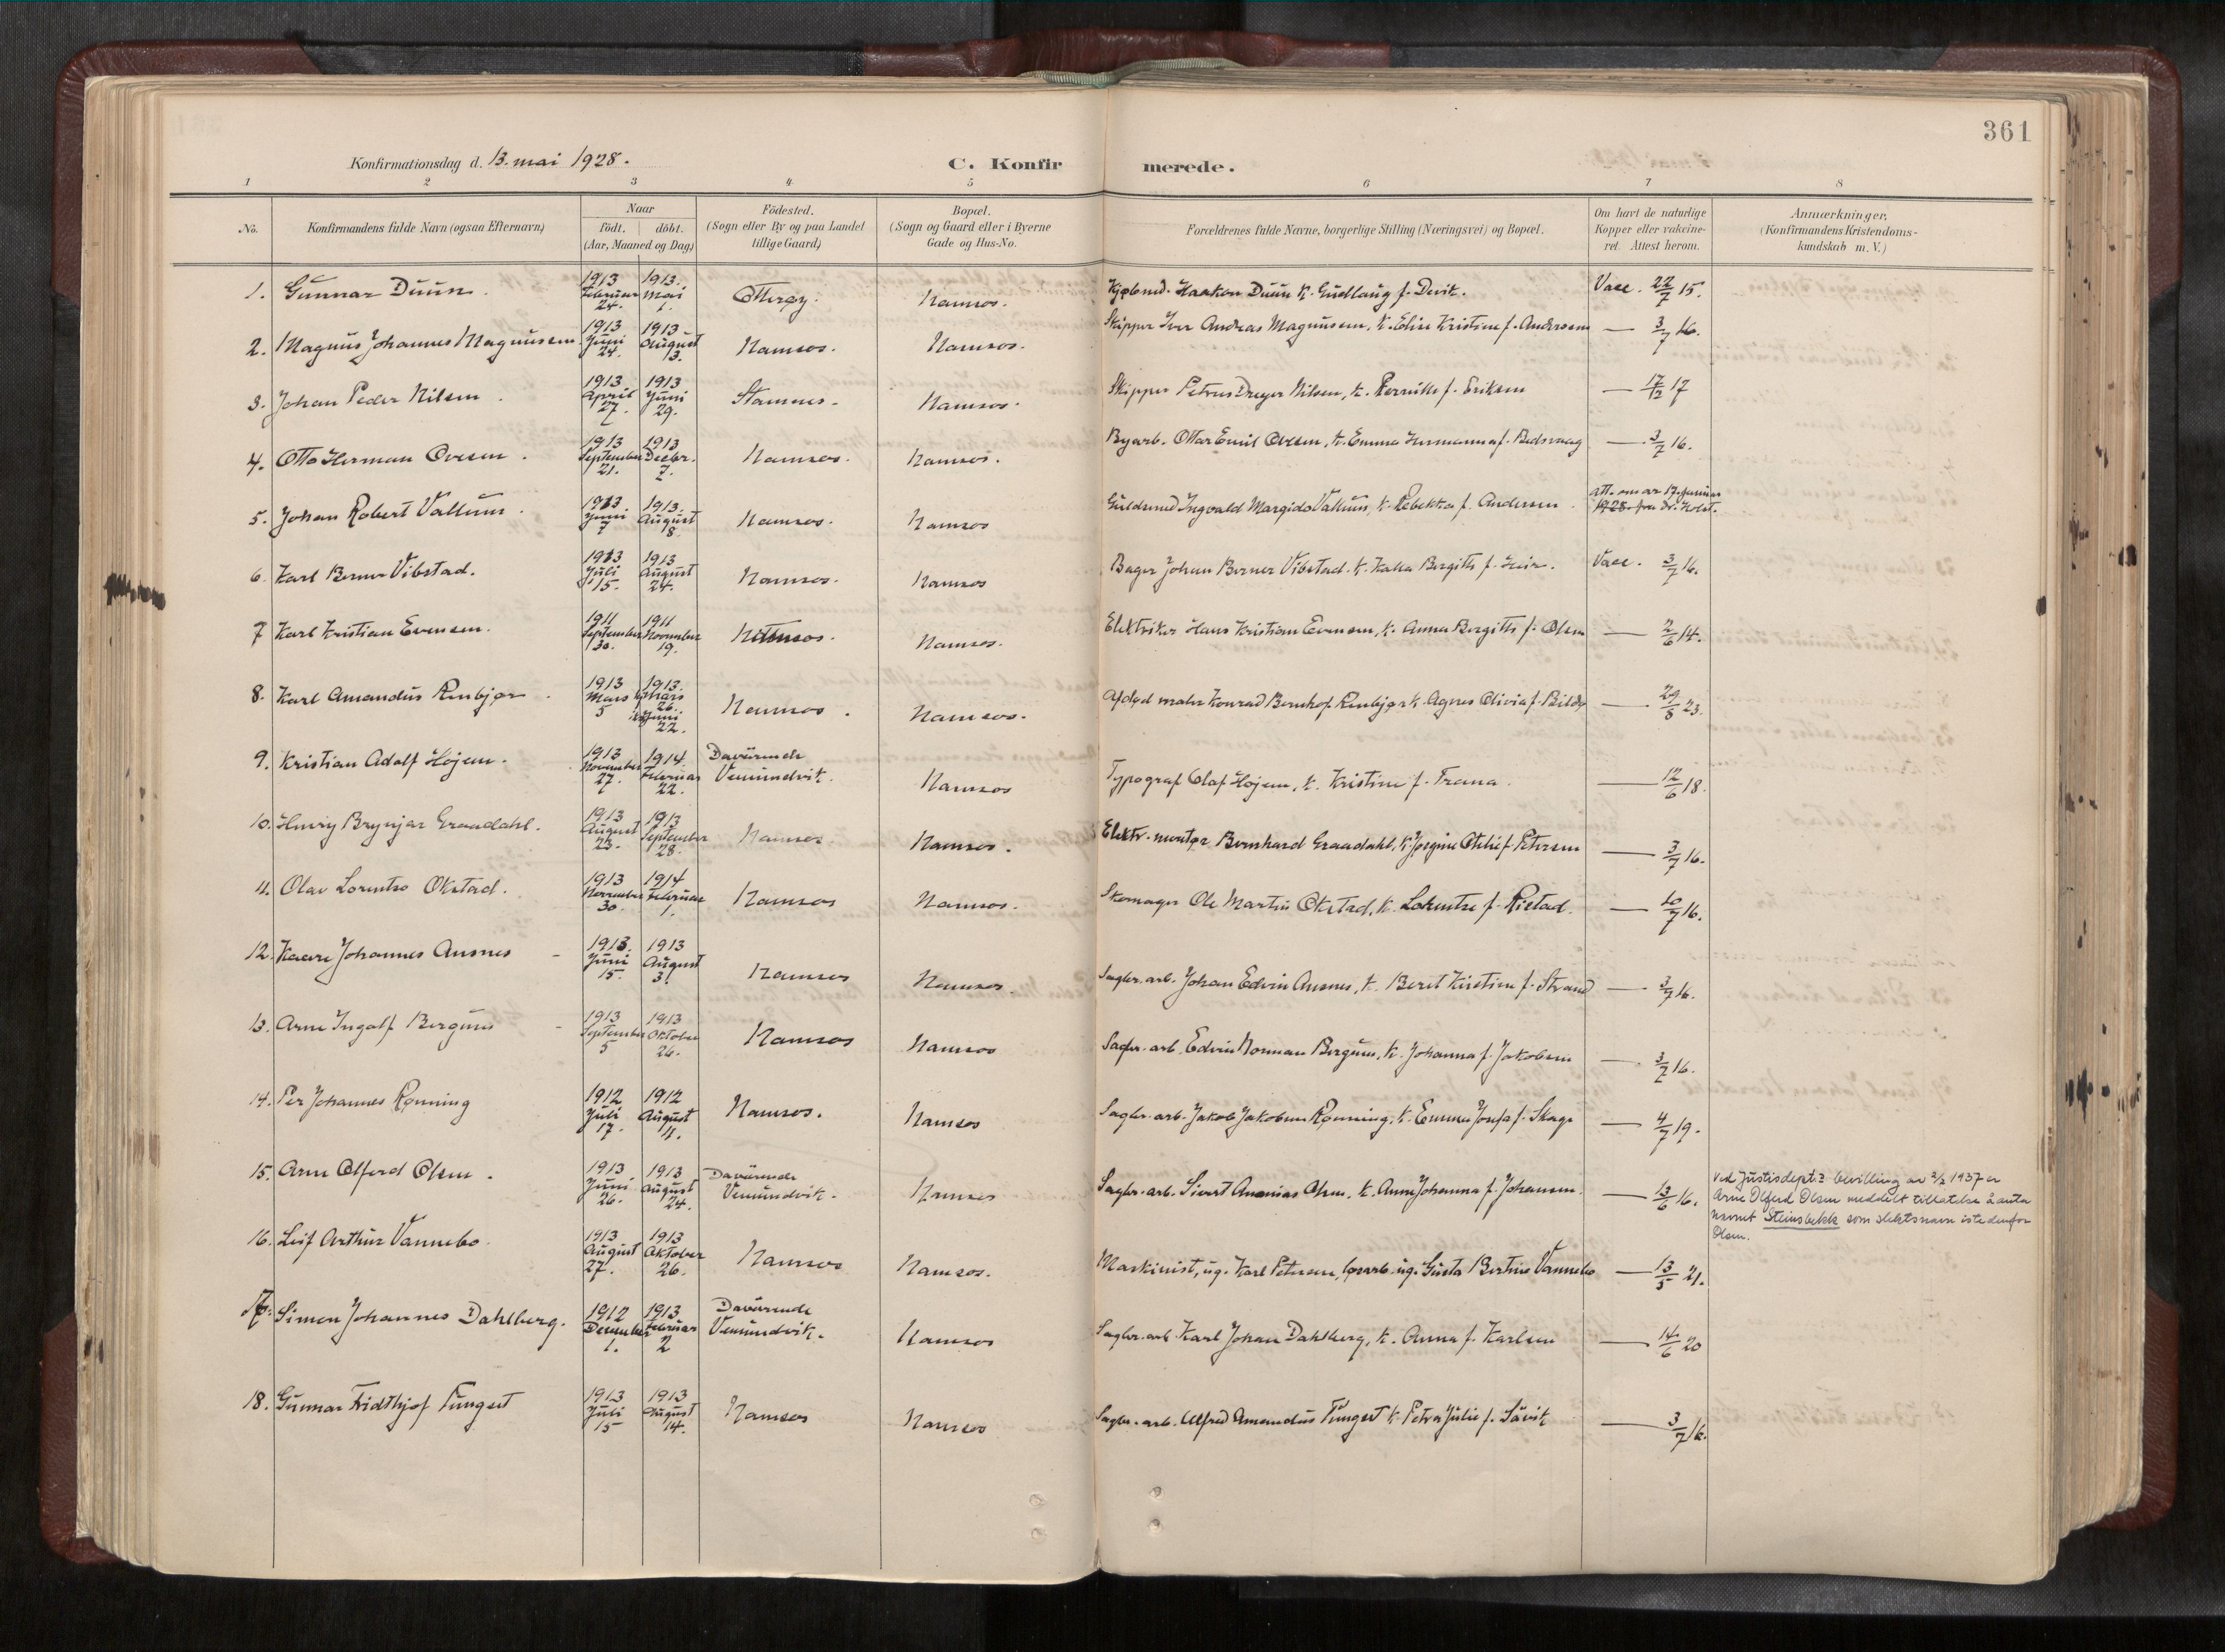 361
Konfirmationsdag d. 13. mai 1928.
C. Konfirmerede.
1 2 3 4 5 6 7 8
No.
Konfirmandens fulde Navn (ogsaa Efternavn)
Naar
födt. döbt.
(Aar, Maaned og Dag)
Födested.
(Sogn eller By og paa Landet
tillige Gaard)
Bopæl.
(Sogn og Gaard eller i Byerne
Gade og Hus-No.
Forældrenes fulde Navne, borgerlige Stilling (Næringsvei) og Bopæl.
Om havt de naturlige
Kopper eller vakcine-
ret. Attest herom.
Anmærkninger.
(Konfirmandens Kristendoms-
kundskab m. V.)
1. Gunnar Duun. 1913 Februar 24. 1913. Mai 1. Otterøy. Namsos. Kjøbmd. Haakon Duun k. Gudlaug f. Devik. Vacc. 22/7 15.
2. Magnus Johannes Magnussen 1913 Juni 24. 1913 August 3. Namsos. Namsos. Skipper Iver Andreas Magnussen, k. Elise Kristine f. Anderssen — 3/7 16.
3. Johan Peder Nilsen 1913 April 27. 1913 Juni 29. Stamnes. Namsos. Skipper Petrus Dreyer Nilsen, k. Pernille f. Eriksen — 17/12 17
4. Otto Herman Ovesen. 1913 September 21. 1913 Decbr. 7. Namsos. Namsos. Byarb. Ottar Emil Ovesen, k. Emma Hermanna f. — 3/7 16.
5. Johan Robert Vallum. 1913 Juni 7 1913. August 8. Namsos. Namsos Guldsmed Ingvald Margido Vallum, k. Rebekka f. Andersen att. om av 17. januar 1928. fra dr. Holst.
6. Karl Berner Vibstad. 1913 Juli 15. 1913 August 24. Namsos. Namsos Bager Johan Berner Vibstad. k. Kalla Bergitte f. Vacc. 3/7 16.
7 Karl Kristian Evensen. 1911 September 30. 1911 November 19. Namsos. Namsos. Elektriker Hans Kristian Evensen, k. Anna Bergitte f. Olsen — 2/6 14.
8. Karl Amandus Renbjør. 1913 Mars 5 1913. mars 26. Juni 22. Namsos. Namsos. Afdød maler Konrad Bernhof Renbjør k. Agnes Olivia f. — 29/8 23.
9. Kristian Adolf Højem. 1913 November 27. 1914. Februar 22. Daværende Vemundvik. Namsos Typograf Olaf Højem, k. Kristine f. — 12/6 18.
10. Henry Brynjar Graadahl. 1913 August 23. 1913 September 28. Namsos. Namsos. Elektr. montør Bernhard Graadahl, k. Jørgine Otelie f. Petersen — 3/7 16.
11. Olav Lorentso Okstad. 1913 November 30. 1914 Februar 1. Namsos Namsos. Skomager Ole Martin Okstad, k. Lorentse f. Ristad. — 10/7 16.
12. Kaare Johannes Ausnes 1913. Juni 15. 1913 August 3. Namsos Namsos. Sagbr. arb. Johan Edvin Ausnes, k. Beret Kirstine f. Strand — 3/7 16.
13. Arne Ingolf Bergum 1913 September 5 1913 Oktober 26. Namsos Namsos Sagbr. arb. Edvin Norman Bergum, k. Johanna f. Jakobsen — 3/7 16.
14. Per Johannes Rønning 1912 Juli 17. 1912 August 11. Namsos. Namsos Sagbr. arb. Jakob Jakobsen Rønning, k. Emma Josefa f. Skage — 4/7 19.
15. Arne Olferd Olsen. 1913 Juni 26. 1913 August 24. Daværende Vemundvik. Namsos Sagbr. arb. Sivert Ananias Olsen, k. Anne Johanna f. Johansen. — 13/6 16.
ved Justisdept.s bevilling av 3/2 1937 er
Arne Olferd Olsen meddelt tillatelse å anta
navnet Steinsbekk som slektsnavn istedenfor
Olsen.
16. Leif Arthur Vannebo. 1913 August 27. 1913 Oktober 26. Namsos Namsos. Maskinist, ug. Karl Petersen, løsarb. ug. Gusta Bertine Vannebo — 13/5 21.
17. Simen Johannes Dahlberg. 1912 December 1. 1913 Februar 2 Daværende Vemundvik. Namsos Sagbr. arb. Karl Johan Dahlberg, k. Anna f. Karlsen — 14/6 20
18. Gunnar Fridthjof Tungset 1913 Juli 15 1913 August 14. Namsos Namsos Sagbr. arb. Alfred Amandus Tungset k. Petra Julie f. Sävik — 3/7 16.